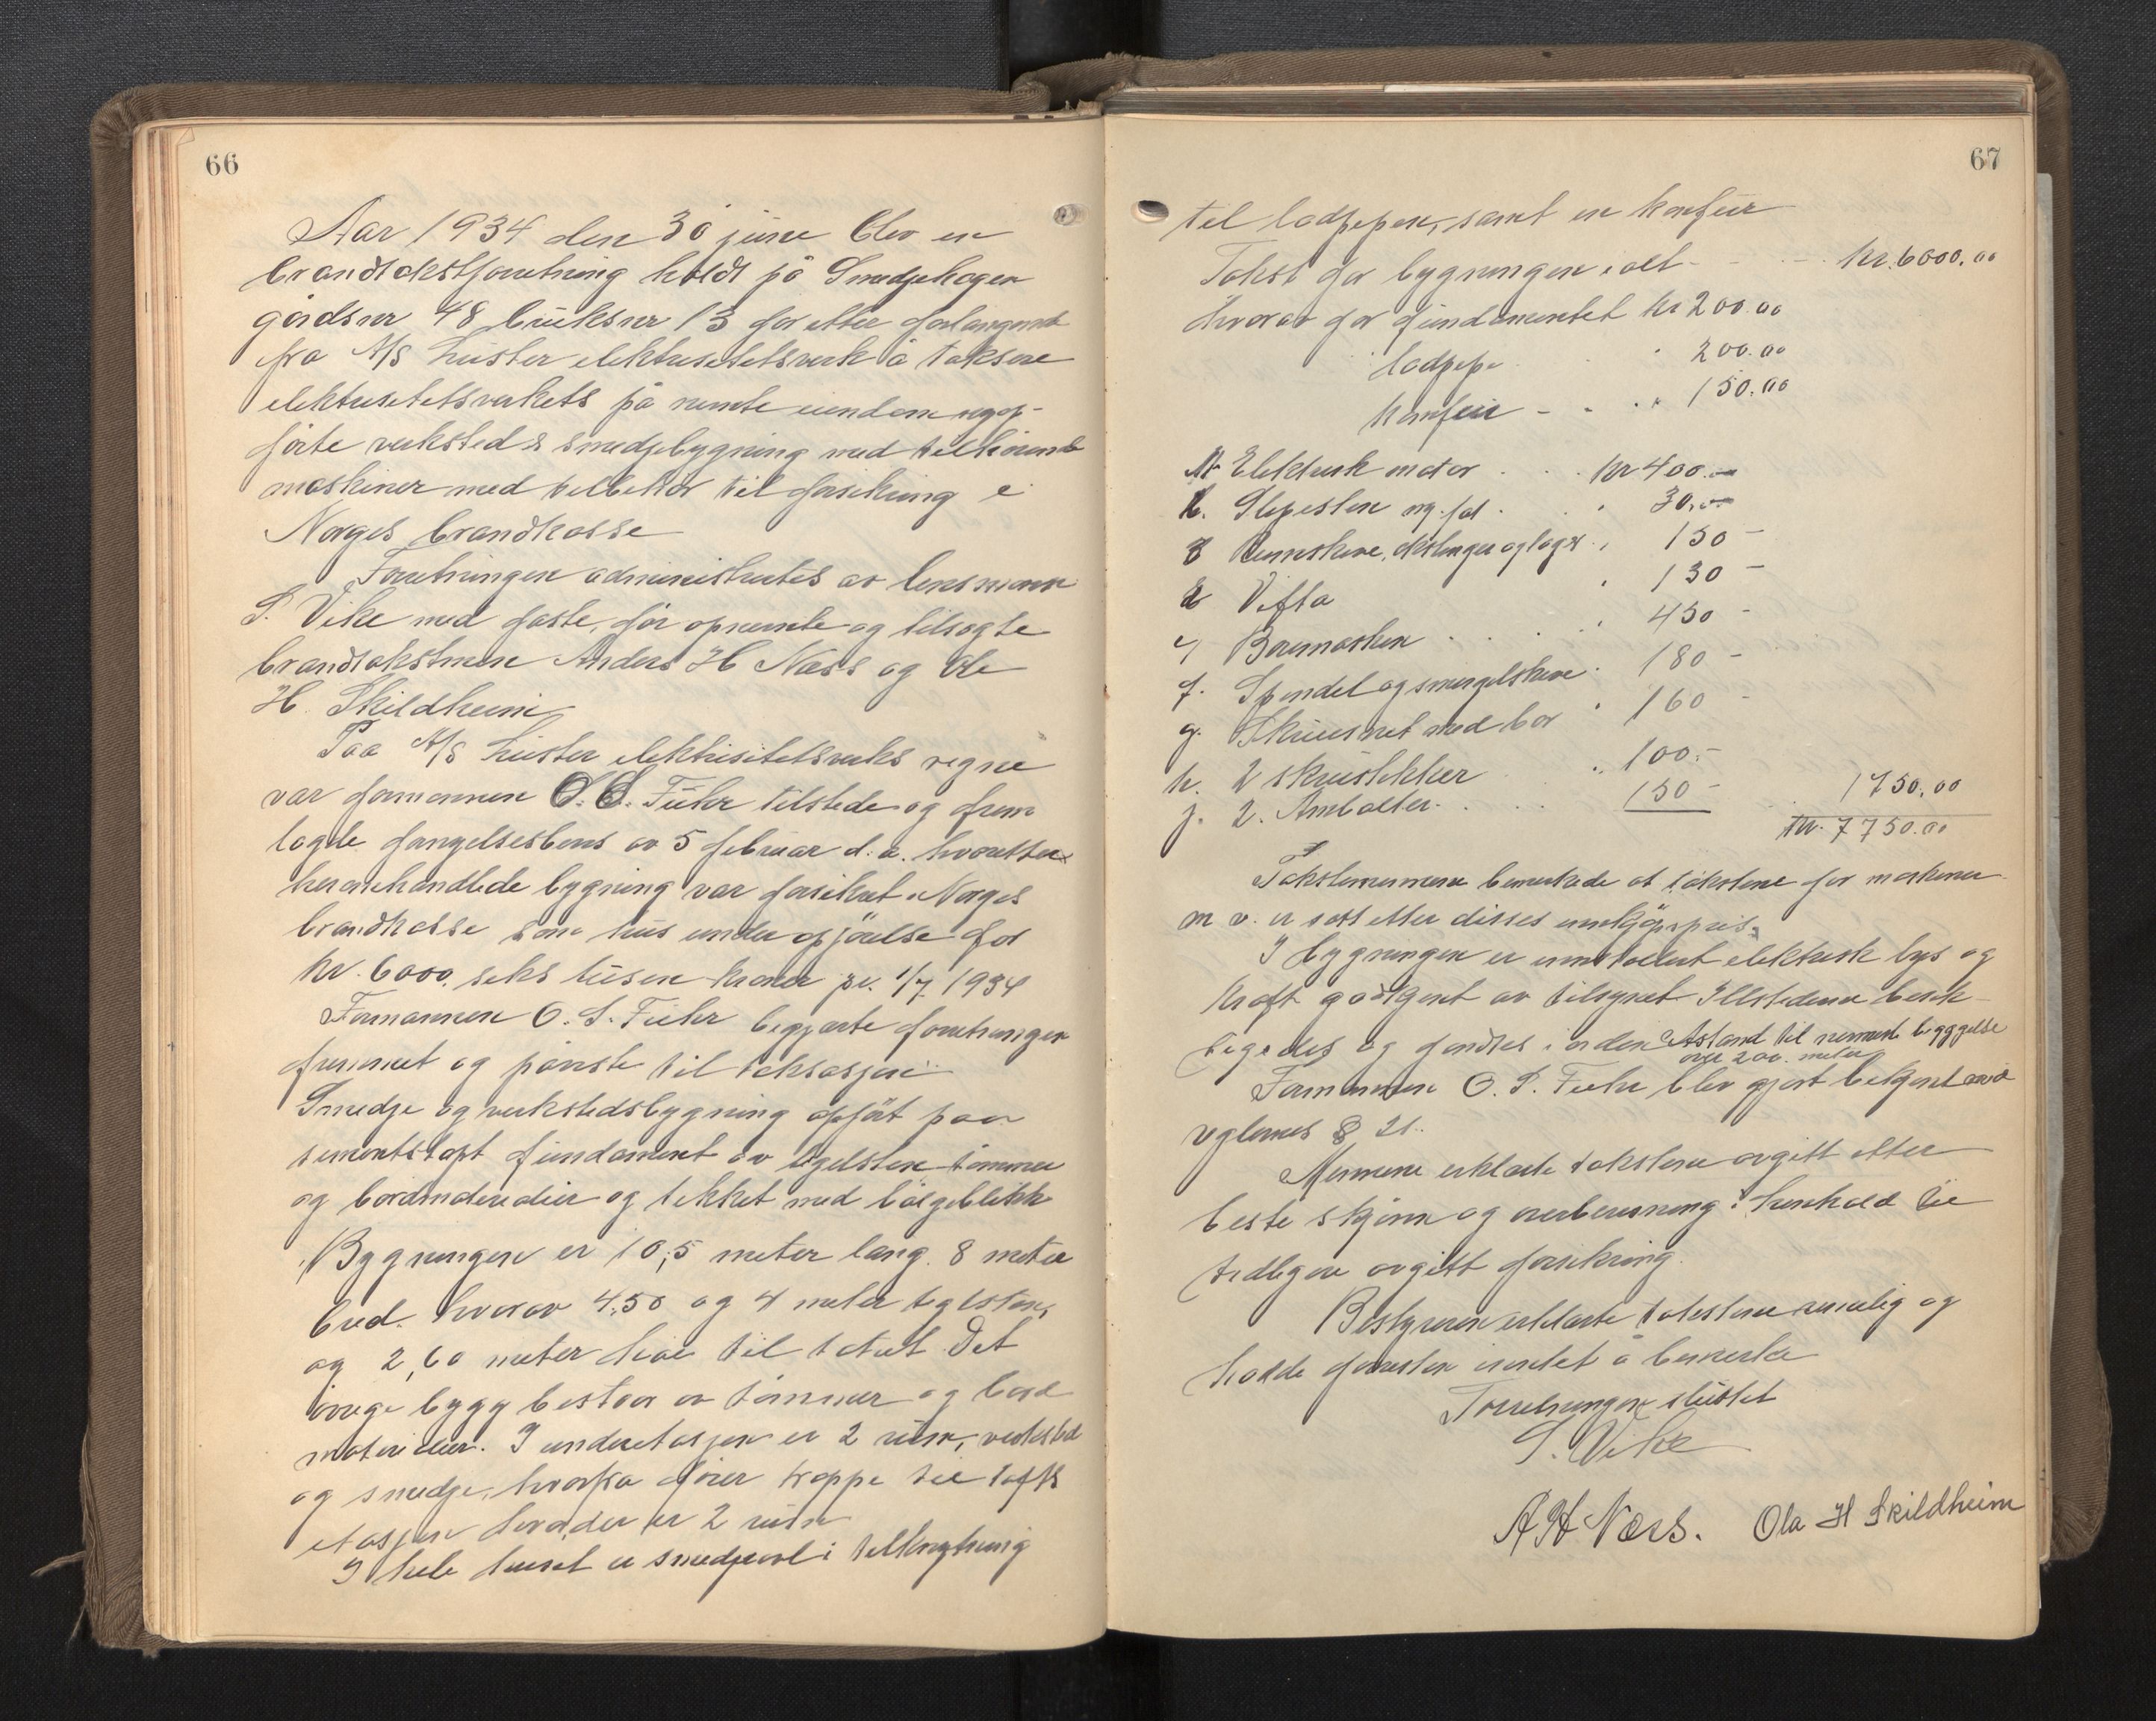 66
Aar 1934 den 30 june blev en
brandtakstforretning holdt på Smedjehagen
gårdsnr 48 bruksnr 13 for etter forlangende
fra A/S Luster elektrisitetsverk å taksere
elektrisitetsverkets på nemte eiendom nyop-
førte verksted & smedjebygning med tilhörende
maskiner med tilbehör til forsikring i
Norges brandkasse
Forretningen administrertes av lensmann
S. Vike med faste, för opnemte og tilsagte
brandtakstmen Anders H Næss og Ole
H. Skildheim
Paa A/S Luster elektrisitetsverks vegne
var formannen O. S. Fuhr tilstede og frem
lagde fangelsesbevis av 5 februar d. a. hvoretter
heromhandlede bygning var forsikret i Norges
brandkasse som hus under opförelse for
kr. 6000 seks tusen kroner pr. 1/7 1934
Formannen O. S. Fuhr begjærte forretningen
fremmet og påviste til taksasjon
Smedje og verkstedsbygning opfört paa
sementstöpt fundament av teglsten tömmer
og bordmaterialier og tekket med bölgeblikk
Bygningen er 10,5 meter lang. 8 meter
bred. hvorav 4,50 og 4 meter teglsten,
og 2,60 meter höi til taket. Det
övrige bygg bestaar av tömmer og bord
materialier. I underetasjen er 2 rum, verksted
og smedje, hvorfra förer trappe til lofts
etasjen hvor der er 2 rum
I hele huset er smedjeavl i tilknytning
67
til lodpipen, samt en komfur
Takst for bygningen i alt - - - kr. 6000.00
Hvorav for fundamentet kr 200.00
lodpipe " 200.00
komfur - - " 150.00
Elektrisk motor . . . kr 400.-
Slipesten ny. fot . " 30.-
Remskive, akslinger og lager " 150 -
Vifta " 130 -
Boremaskin . . . " 450 -
f. Spindel og smergelskive . 180 -
g. Skruesnet med bor " 160 -
h. 2 skrustikker " 100.-
j. 2. Ambolter . . . 150 - 1750.00
Kr. 7750.00
Takstmennene bemerkede at takstene for maskiner
m v. er satt etter disses innkjöpspris.
I bygningen er innstallert elektrisk lys og
kraft godkjent av tilsynet Illstedene besik-
tigedes og fandtes i orden Astand til nermeste byggelse
over 200 meter
Formannen O. S. Fuhr blev gjort bekjent med
reglernes § 21.
Mennene erklærte takstene avgitt efter
beste skjönn og overbevisning i henhold til
tidligere avgitt forsikring.
Bestyreren erklærte takstene rimelig og
hadde forresten intet å bemerke
Forretningen sluttet
S. Vike
A H Næss. Ola H Skildheim